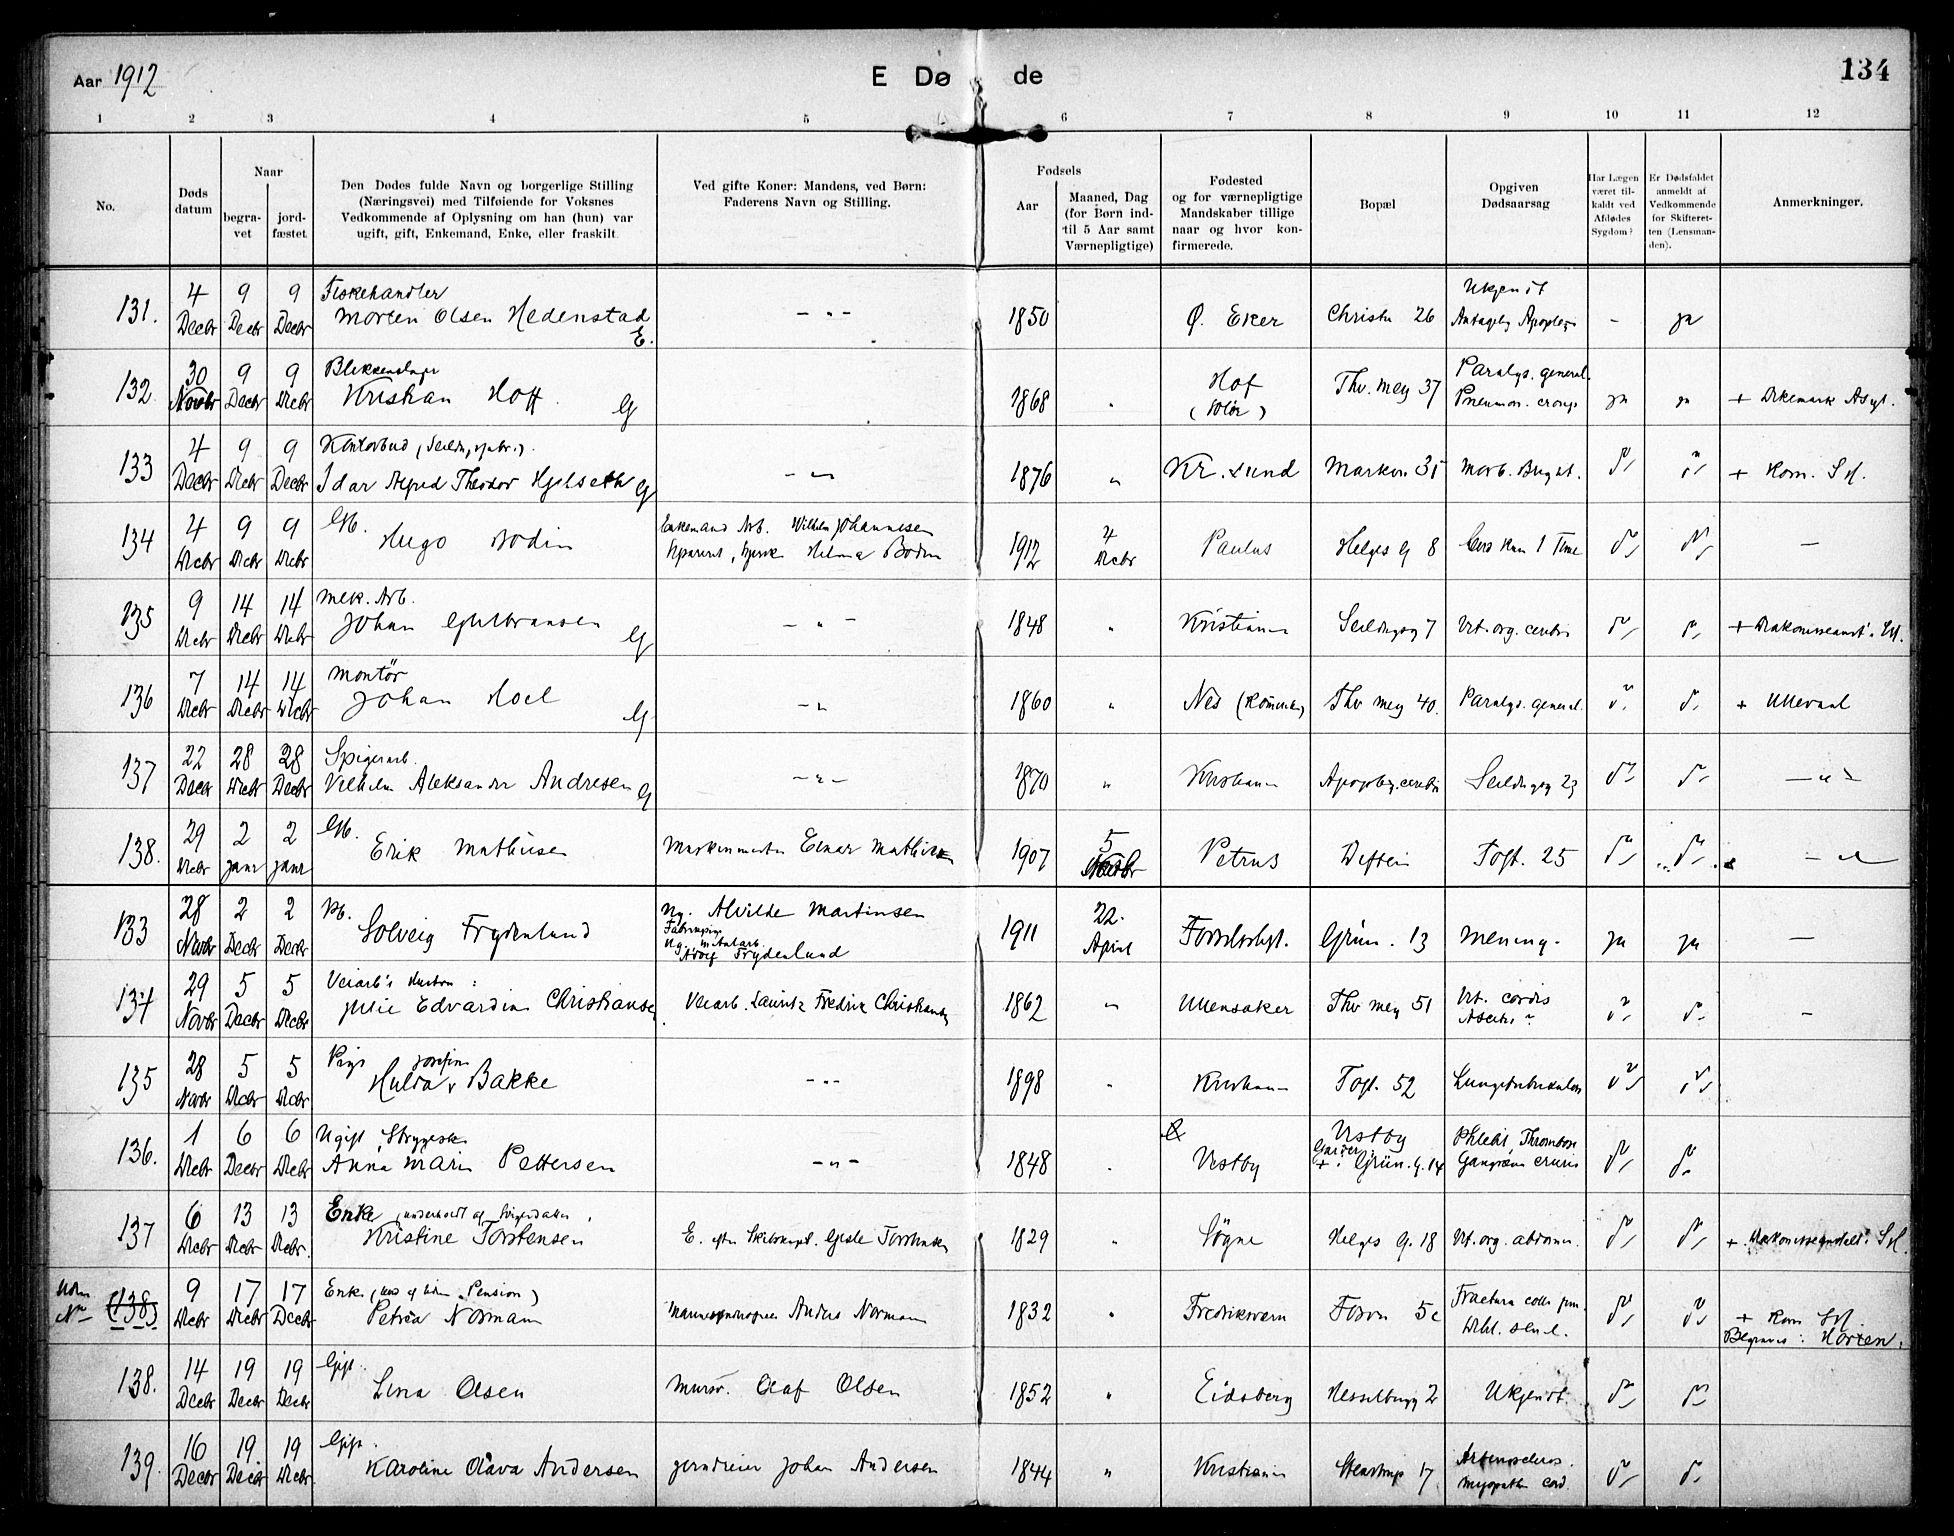 Aar 1912 E Døde 134
1 2 3 4 5 6 7 8 9 10 11 12
No.
Døds datum
Naar
begravet
jordfæstet
Den Dødes fulde Navn og borgerlige Stilling (Næringsvei) med Tilføiende for Voksnes Vedkommende af Oplysning om han (hun) var ugift, gift, Enkemand, Enke, eller fraskilt.
Ved gifte Koner: Mandens, ved Børn: Faderens Navn og Stilling.
Fødsels
Aar
Maaned, Dag (for Børn indtil 5 Aar samt Værnepligtige)
Fødested og for værnepligtige Mandskaber tillige naar og hvor konfirmerede.
Bopæl
Opgiven Dødsaarsag
Har Lægen været tilkaldt ved Afdødes Sygdom?
Er Dødsfaldet anmeldt af Vedkommende for Skifteretten (Lensmanden).
Anmerkninger.
131. 4 Decbr 9 Decbr 9 Decbr Fiskehandler Morten Olsen Hedenstad E. — " — 1850 Ø. Eker Christn 26 Ukjendt Antagelig Apoplex – ja
132 30 Novbr 9 Decbr 9 Decbr Kristian Hoff G 1868 " Hof (Solør) Thv. mey 37 Paralys. general. Pneumon. croup ja ja + Dikemark Asyl.
133 4 Decbr 9 Decbr 9 Decbr Kontorbud Idar Alfred Theodor Hjelseth G — " — 1876 " Kr. sund Markvn 35 Morb. Bright. + Kom. S H.
134 4 Decbr 9 Decbr 9 Decbr Gb. Hugo Bodin Enkemand Arb. Wilhelm Johannesen Hilma Bodin 1912 4 Decbr Paulus Helges G 8 Kun 1 Time —
135 9 Decbr 14 Decbr 14 Decbr Mek. Arb. Johan Gulbransen G — " — 1848 " Kristiania Seildugsg 7 Vit. org. centr.
136 7 Decbr 14 Decbr 14 Decbr Montør Johan Hoel G — " 1860 " Nes (Romerike) Thv mey 40. Paralys. general. + Ullevaal
137 22 Decbr 28 Decbr 28 Decbr Spigerarb. Vilhelm Aleksander Andresen G — " — 1870 " Kristiania Apoplex. cerebri Seildugsg 23 — " —
138. 29 Decbr 2 Janr 2 Janr Gb. Erik Mathisen Maskinmester Einar Mathisen 1907 5 Petrus Difteri Toft. 25 — " —
133 28 Novbr 2 Decbr 2 Decbr Pb. Solveig Frydenlund Ug. Alvilde Martinsen Ug. metalarb. Adolf Frydenlund 1911 22. April Fødselsst. Grün. 13 Mening. ja ja —
134 29 Novbr 5 Decbr 5 Decbr Veiarb's Hustru: Julie Edvardine Christiansen Veiarb. Lauritz Fredrik Christiansen 1862 " Ullensaker Thv mey 51 Vit. cordis Ascites? –
135 28 Novbr 5 Decbr 5 Decbr Pige Hulda Josefine Bakke — " — 1898 " Kristiania Toft. 52 Lungetuberkulose
136. 1 Decbr 6 Decbr 6 Decbr Ugift Strygerske Anna Marie Pettersen — " — 1848 " Vestby Vestby Garder + Grün. g. 14 Phlebit Thrombose Gangræna cruris
137 6 Decbr 13 Decbr 13 Decbr. Enke (underholdt af Svigerdatter) Kristine Torstensen E. efter Skibskapt. Gjeste Torstensen 1829 " Søgne Helges G. 18 Vit. org. abdomin. + Diakonisseanstalt. S H.
Uden No (138) 9 Decbr 17 Decbr 17 Decbr Enke Pension) Petrea Normann Anders Normann 1832 " Fredriksværn Fossv 5c Fractura colli fem. Debil. senil. + Kom S H. Begraves i Horten.
138. 14 Decbr 19 Decbr 19 Decbr Gift. Lina Olsen Mursv. Olaf Olsen 1852 " Eidsberg Hesselbergg 2 Ukjendt.
139. 16 Decbr 19 Decbr 19 Decbr Gift. Karoline Olava Andersen Jerndreier Johan Andersen 1844 " Kristiania Stenstrup 17 Arterioscleros. Myopathia cord.